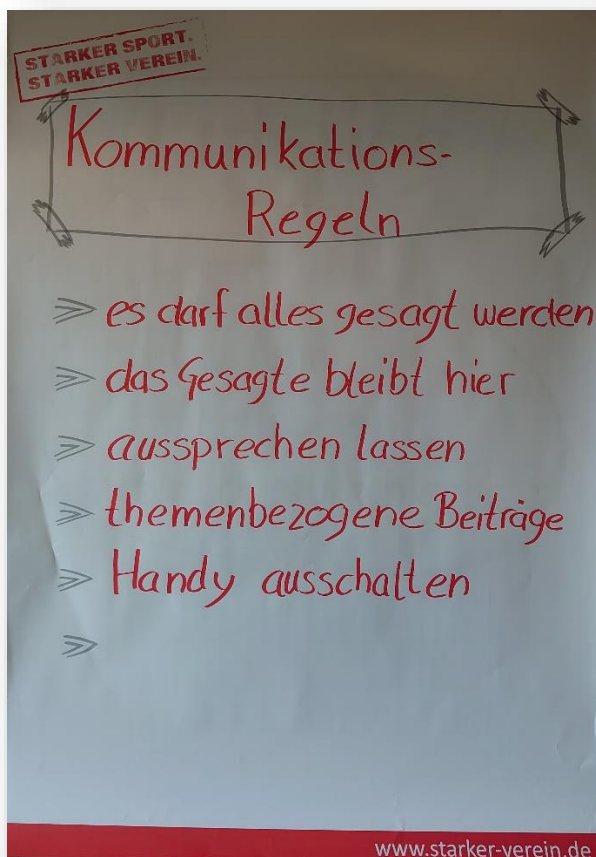 STARKER SPORT.
STARKER VEREIN.
Kommunikations-
Regeln
es darf alles gesagt werden
das Gesagte bleibt hier
aussprechen lassen
themenbezogene Beiträge
Handy ausschalten
www.starker-verein.de